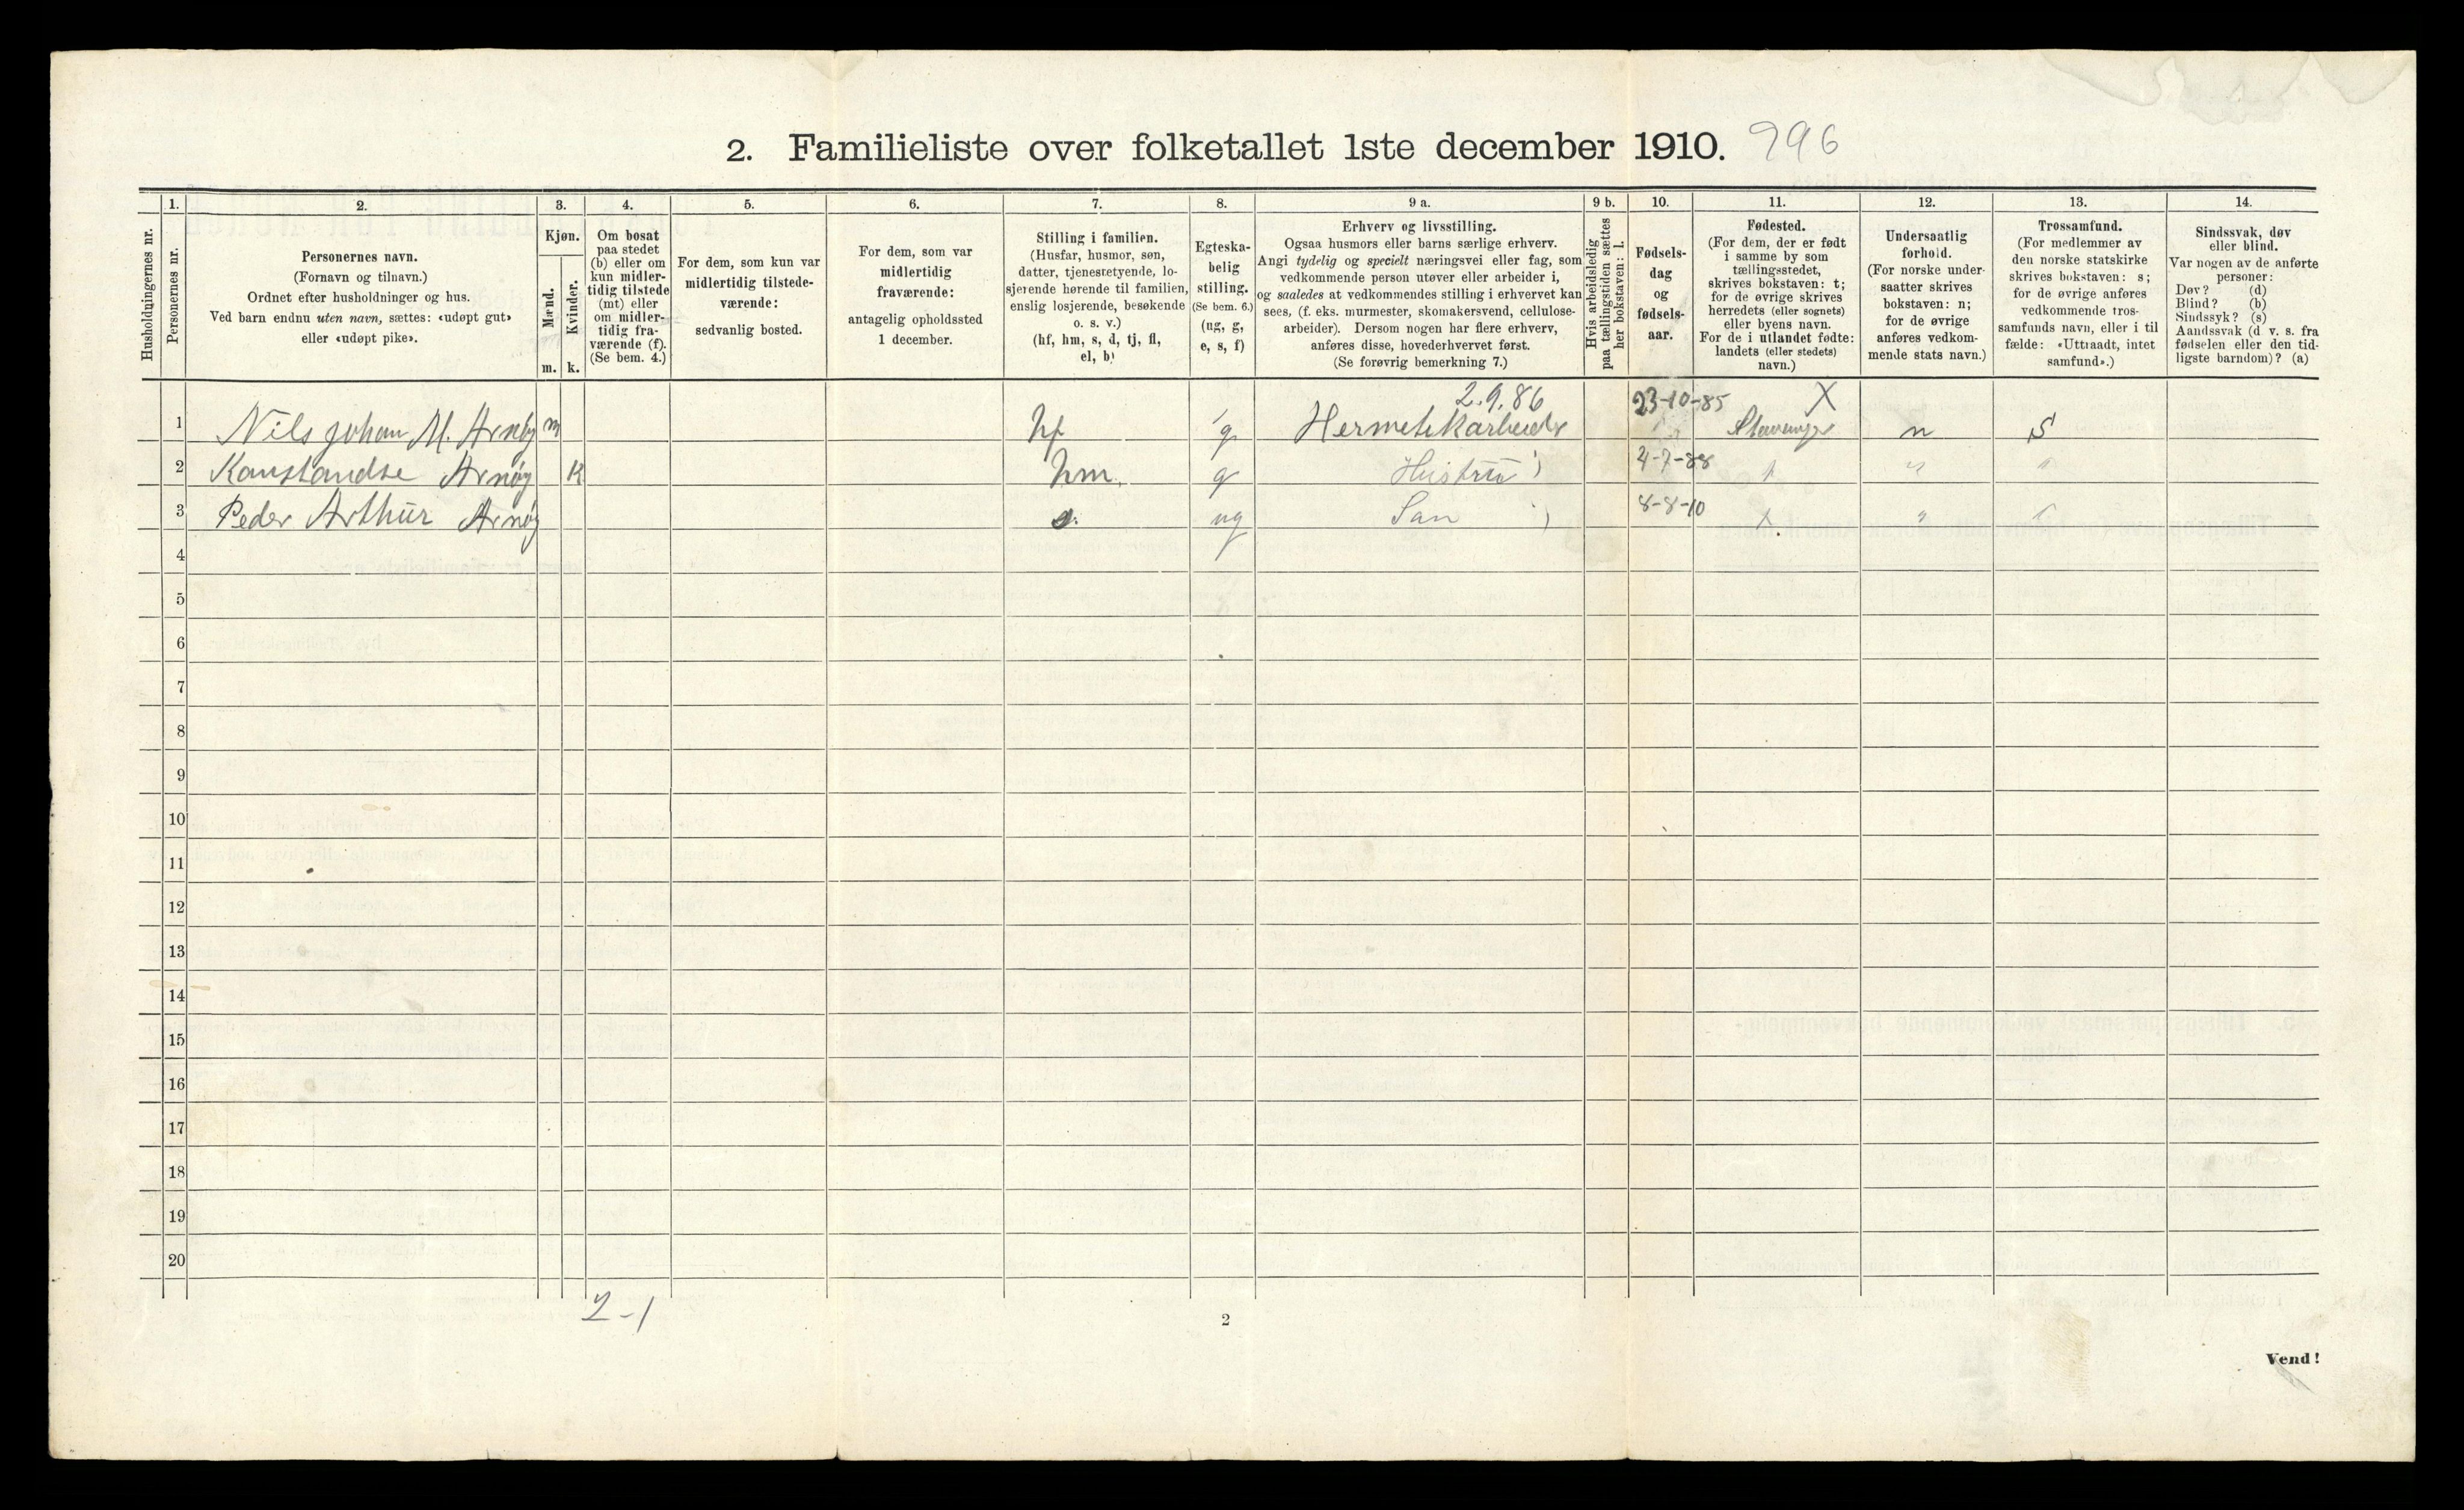 2. Familieliste over folketallet 1ste december 1910. 996
Husholdningernes nr.
1.
Personernes nr.
2.
Personernes navn.
(Fornavn og tilnavn.)
Ordnet efter husholdninger og hus.
Ved barn endnu uten navn, sættes: «udøpt gut»
eller «udøpt pike».
3.
Kjøn.
Mænd.
Kvinder.
m. k.
4.
Om bosat
paa stedet
(b) eller om
kun midler-
tidig tilstede
(mt) eller
om midler-
tidig fra-
værende (f).
(Se bem. 4.)
5.
For dem, som kun var
midlertidig tilstede-
værende:
sedvanlig bosted.
6.
For dem, som var
midlertidig
fraværende:
antagelig opholdssted
1 december.
7.
Stilling i familien.
(Husfar, husmor, søn,
datter, tjenestetyende, lo-
sjerende hørende til familien,
enslig losjerende, besøkende
o. s. v.)
(hf, hm, s, d, tj, fl,
el, b)
8.
Egteska-
belig
stilling.
(Se bem. 6.)
(ug, g,
e, s, f)
9 a.
Erhverv og livsstilling.
Ogsaa husmors eller barns særlige erhverv.
Angi tydelig og specielt næringsvei eller fag, som
vedkommende person utøver eller arbeider i,
og saaledes at vedkommendes stilling i erhvervet kan
sees, (f. eks. murmester, skomakersvend, cellulose-
arbeider). Dersom nogen har flere erhverv,
anføres disse, hovederhvervet først.
(Se forøvrig bemerkning 7.)
9 b.
Hvis arbeidsledig
paa tællingstiden sættes
her bokstaven: l.
10.
Fødsels-
dag
og
fødsels-
aar.
11.
Fødested.
(For dem, der er født
i samme by som
tællingsstedet,
skrives bokstaven: t;
for de øvrige skrives
herredets (eller sognets)
eller byens navn.
For de i utlandet fødte:
landets (eller stedets)
navn.)
12.
Undersaatlig
forhold.
(For norske under-
saatter skrives
bokstaven: n;
for de øvrige
anføres vedkom-
mende stats navn.)
13.
Trossamfund.
(For medlemmer av
den norske statskirke
skrives bokstaven: s;
for de øvrige anføres
vedkommende tros-
samfunds navn, eller i til
fælde: «Uttraadt, intet
samfund».)
14.
Sindssvak, døv
eller blind.
Var nogen av de anførte
personer:
Døv? (d)
Blind? (b)
Sindssyk? (s)
Aandssvak (d. v. s. fra
fødselen eller den tid-
ligste barndom)? (a)
2.9.86 23-10-85 X
1 Nils Johan M. Arnøy m hf g Hermetikarbeider Stavanger n S
2 Konstandse Arnøy K hm. g Hustru 4-7-88 t " "
3 Peder Arthur Arnøy s. ug San 8-8-10 t " "
4
5
6
7
8
9
10
11
12
13
14
15
16
17
18
19
20
2-1
2
Vend!